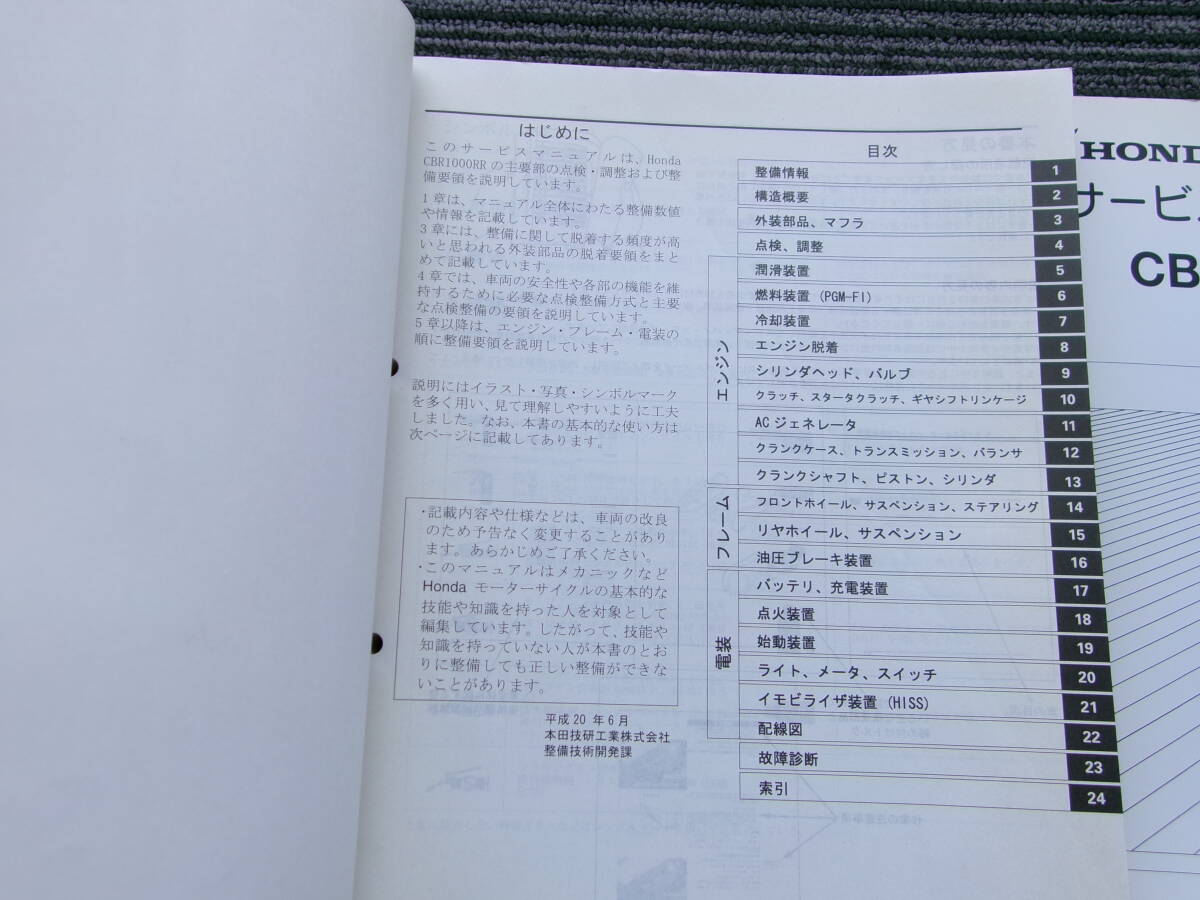 はじめに
このサービスマニュアルは、Honda
CBR1000RR の主要部の点検・調整および整
備要領を説明しています。
1 章は、マニュアル全体にわたる整備数値
や情報を記載しています。
3 章には、整備に関して脱着する頻度が高
いと思われる外装部品の脱着要領をまと
めて記載しています。
4 章では、車両の安全性や各部の機能を維
持するために必要な点検整備方式と主要
な点検整備の要領を説明しています。
5 章以降は、エンジン・フレーム・電装の
順に整備要領を説明しています。
説明にはイラスト・写真・シンボルマーク
を多く用い、見て理解しやすいように工夫
しました。なお、本書の基本的な使い方は
次ページに記載してあります。
・記載内容や仕様などは、車両の改良
のため予告なく変更することがあり
ます。あらかじめご了承ください。
・このマニュアルはメカニックなど
Honda モーターサイクルの基本的な
技能や知識を持った人を対象として
編集しています。したがって、技能や
知識を持っていない人が本書のとお
りに整備しても正しい整備ができな
いことがあります。
平成 20 年 6 月
本田技研工業株式会社
整備技術開発課
目次
整備情報 1
構造概要 2
外装部品、マフラ 3
点検、調整 4
エンジン
潤滑装置 5
燃料装置 (PGM-FI) 6
冷却装置 7
エンジン脱着 8
シリンダヘッド、バルブ 9
クラッチ、スタータクラッチ、ギヤシフトリンケージ 10
AC ジェネレータ 11
クランクケース、トランスミッション、バランサ 12
クランクシャフト、ピストン、シリンダ 13
フレーム
フロントホイール、サスペンション、ステアリング 14
リヤホイール、サスペンション 15
油圧ブレーキ装置 16
電装
バッテリ、充電装置 17
点火装置 18
始動装置 19
ライト、メータ、スイッチ 20
イモビライザ装置 (HISS) 21
配線図 22
故障診断 23
索引 24
HOND
サービ
CB